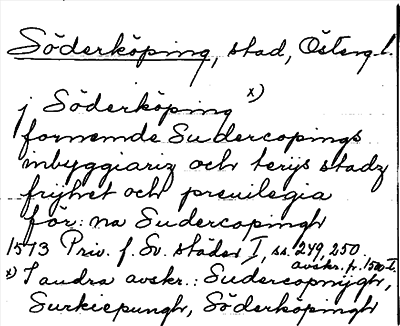 Söderköping, stad, Österg.l.
j Söderköping x)
fornemde Sudercopings
inbyggiariz och terys stadz
frijhet och preuilegia
för: na Sudercopingh
1513 Priv. f. Sv. städer I, ss. 249, 250
avskr. fr. 1500-t.
x) I andra avskr.: Sudercopnijgh,
Surkiepungh, Söderköpingh